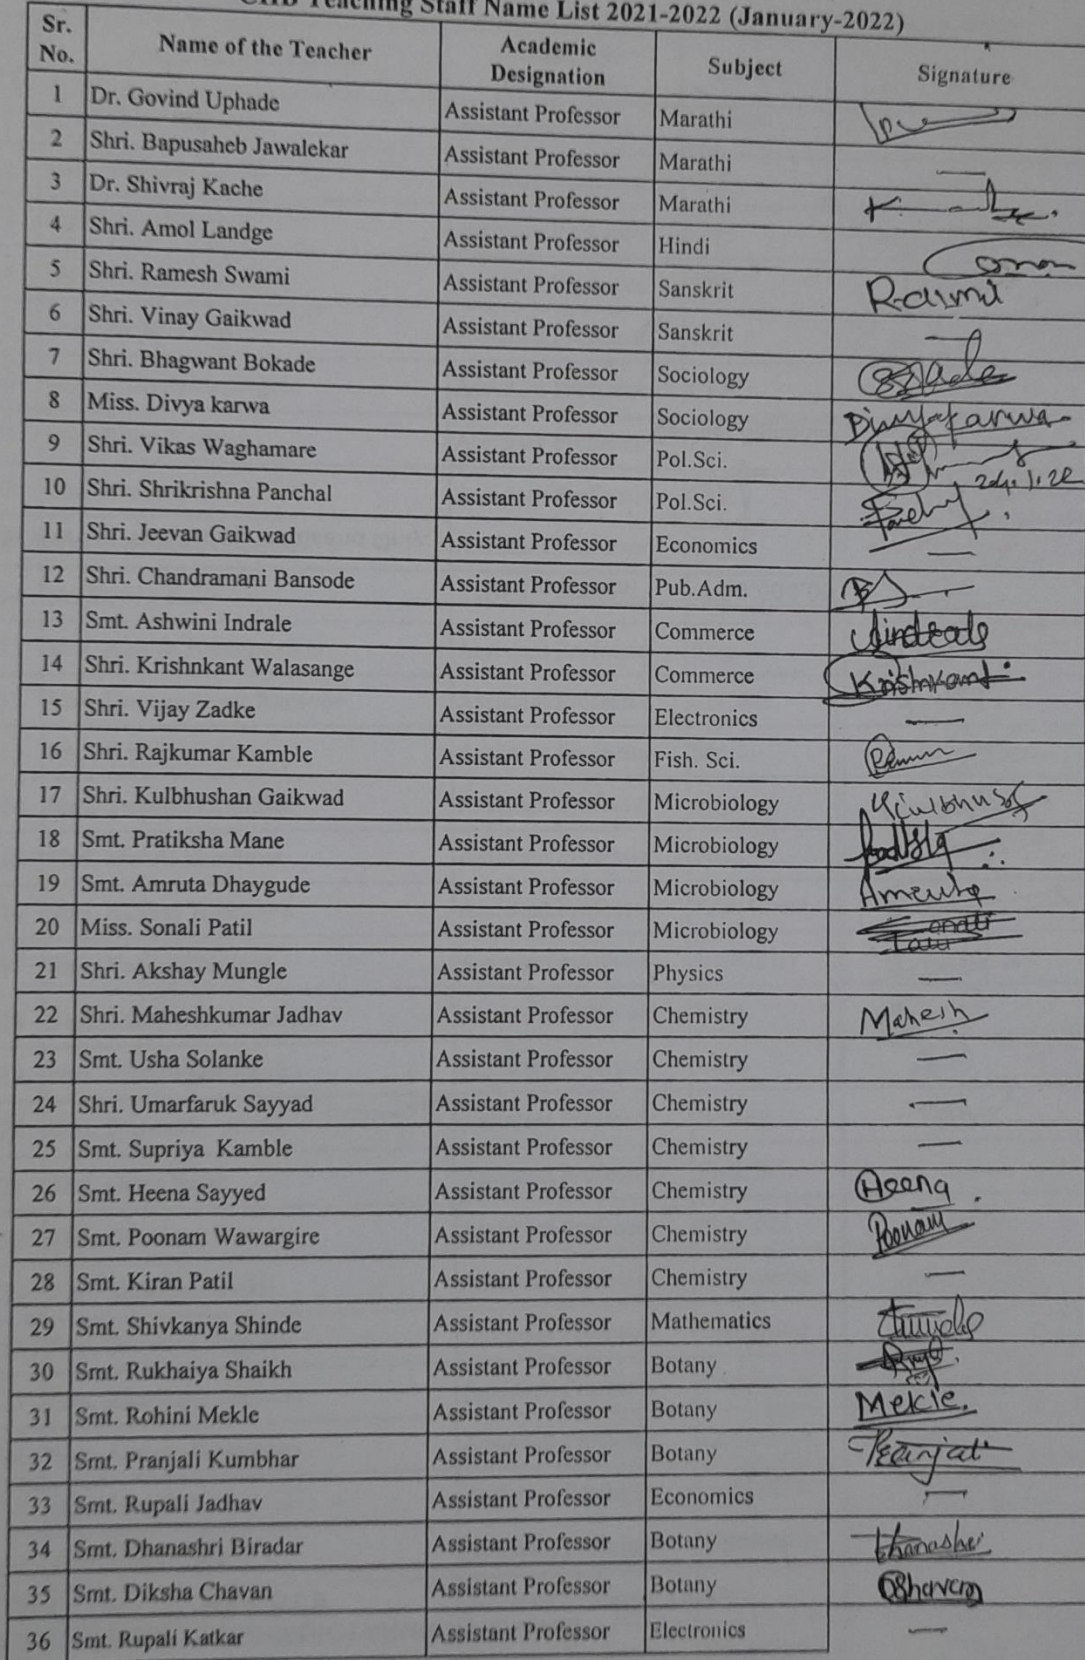 Teaching Staff Name List 2021-2022 (January-2022)
Sr. No. Name of the Teacher Academic Designation Subject Signature
1 Dr. Govind Uphade Assistant Professor Marathi
2 Shri. Bapusaheb Jawalekar Assistant Professor Marathi —
3 Dr. Shivraj Kache Assistant Professor Marathi
4 Shri. Amol Landge Assistant Professor Hindi
5 Shri. Ramesh Swami Assistant Professor Sanskrit
6 Shri. Vinay Gaikwad Assistant Professor Sanskrit —
7 Shri. Bhagwant Bokade Assistant Professor Sociology
8 Miss. Divya karwa Assistant Professor Sociology Divyakarwa
9 Shri. Vikas Waghamare Assistant Professor Pol.Sci.
10 Shri. Shrikrishna Panchal Assistant Professor Pol.Sci.
11 Shri. Jeevan Gaikwad Assistant Professor Economics —
12 Shri. Chandramani Bansode Assistant Professor Pub.Adm.
13 Smt. Ashwini Indrale Assistant Professor Commerce
14 Shri. Krishnkant Walasange Assistant Professor Commerce Krishnkant
15 Shri. Vijay Zadke Assistant Professor Electronics —
16 Shri. Rajkumar Kamble Assistant Professor Fish. Sci.
17 Shri. Kulbhushan Gaikwad Assistant Professor Microbiology
18 Smt. Pratiksha Mane Assistant Professor Microbiology
19 Smt. Amruta Dhaygude Assistant Professor Microbiology Amruta
20 Miss. Sonali Patil Assistant Professor Microbiology
21 Shri. Akshay Mungle Assistant Professor Physics —
22 Shri. Maheshkumar Jadhav Assistant Professor Chemistry Mahesh
23 Smt. Usha Solanke Assistant Professor Chemistry —
24 Shri. Umarfaruk Sayyad Assistant Professor Chemistry —
25 Smt. Supriya Kamble Assistant Professor Chemistry —
26 Smt. Heena Sayyed Assistant Professor Chemistry Heena
27 Smt. Poonam Wawargire Assistant Professor Chemistry Poonam
28 Smt. Kiran Patil Assistant Professor Chemistry —
29 Smt. Shivkanya Shinde Assistant Professor Mathematics
30 Smt. Rukhaiya Shaikh Assistant Professor Botany
31 Smt. Rohini Mekle Assistant Professor Botany Mekle.
32 Smt. Pranjali Kumbhar Assistant Professor Botany Pranjali
33 Smt. Rupali Jadhav Assistant Professor Economics —
34 Smt. Dhanashri Biradar Assistant Professor Botany Dhanashri
35 Smt. Diksha Chavan Assistant Professor Botany
36 Smt. Rupali Katkar Assistant Professor Electronics —